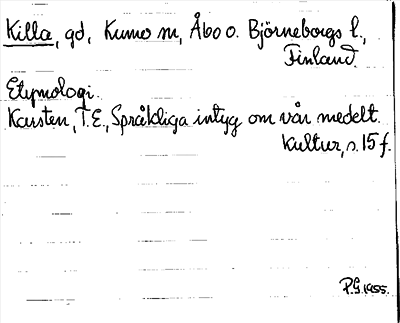 Killa, gd, Kumo sn, Åbo o. Björneborgs l.,
Finland.
Etymologi.
Karsten, T.E., Språkliga intyg om vår medelt.
kultur, s. 15 f.
P.G. 1955.